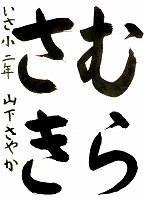 むら
さき
いさ小 二年 山下さやか